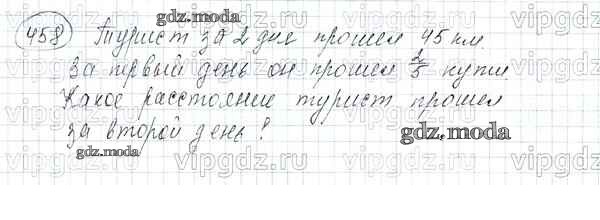 458 Турист за 2 дня прошел 45 км.
За первый день он прошел 2/5 пути.
Какое расстояние турист прошел
за второй день?
gdz.moda
gdz.moda
gdz.moda
gdz.moda
vipgdz.ru
vipgdz.ru
vipgdz.ru